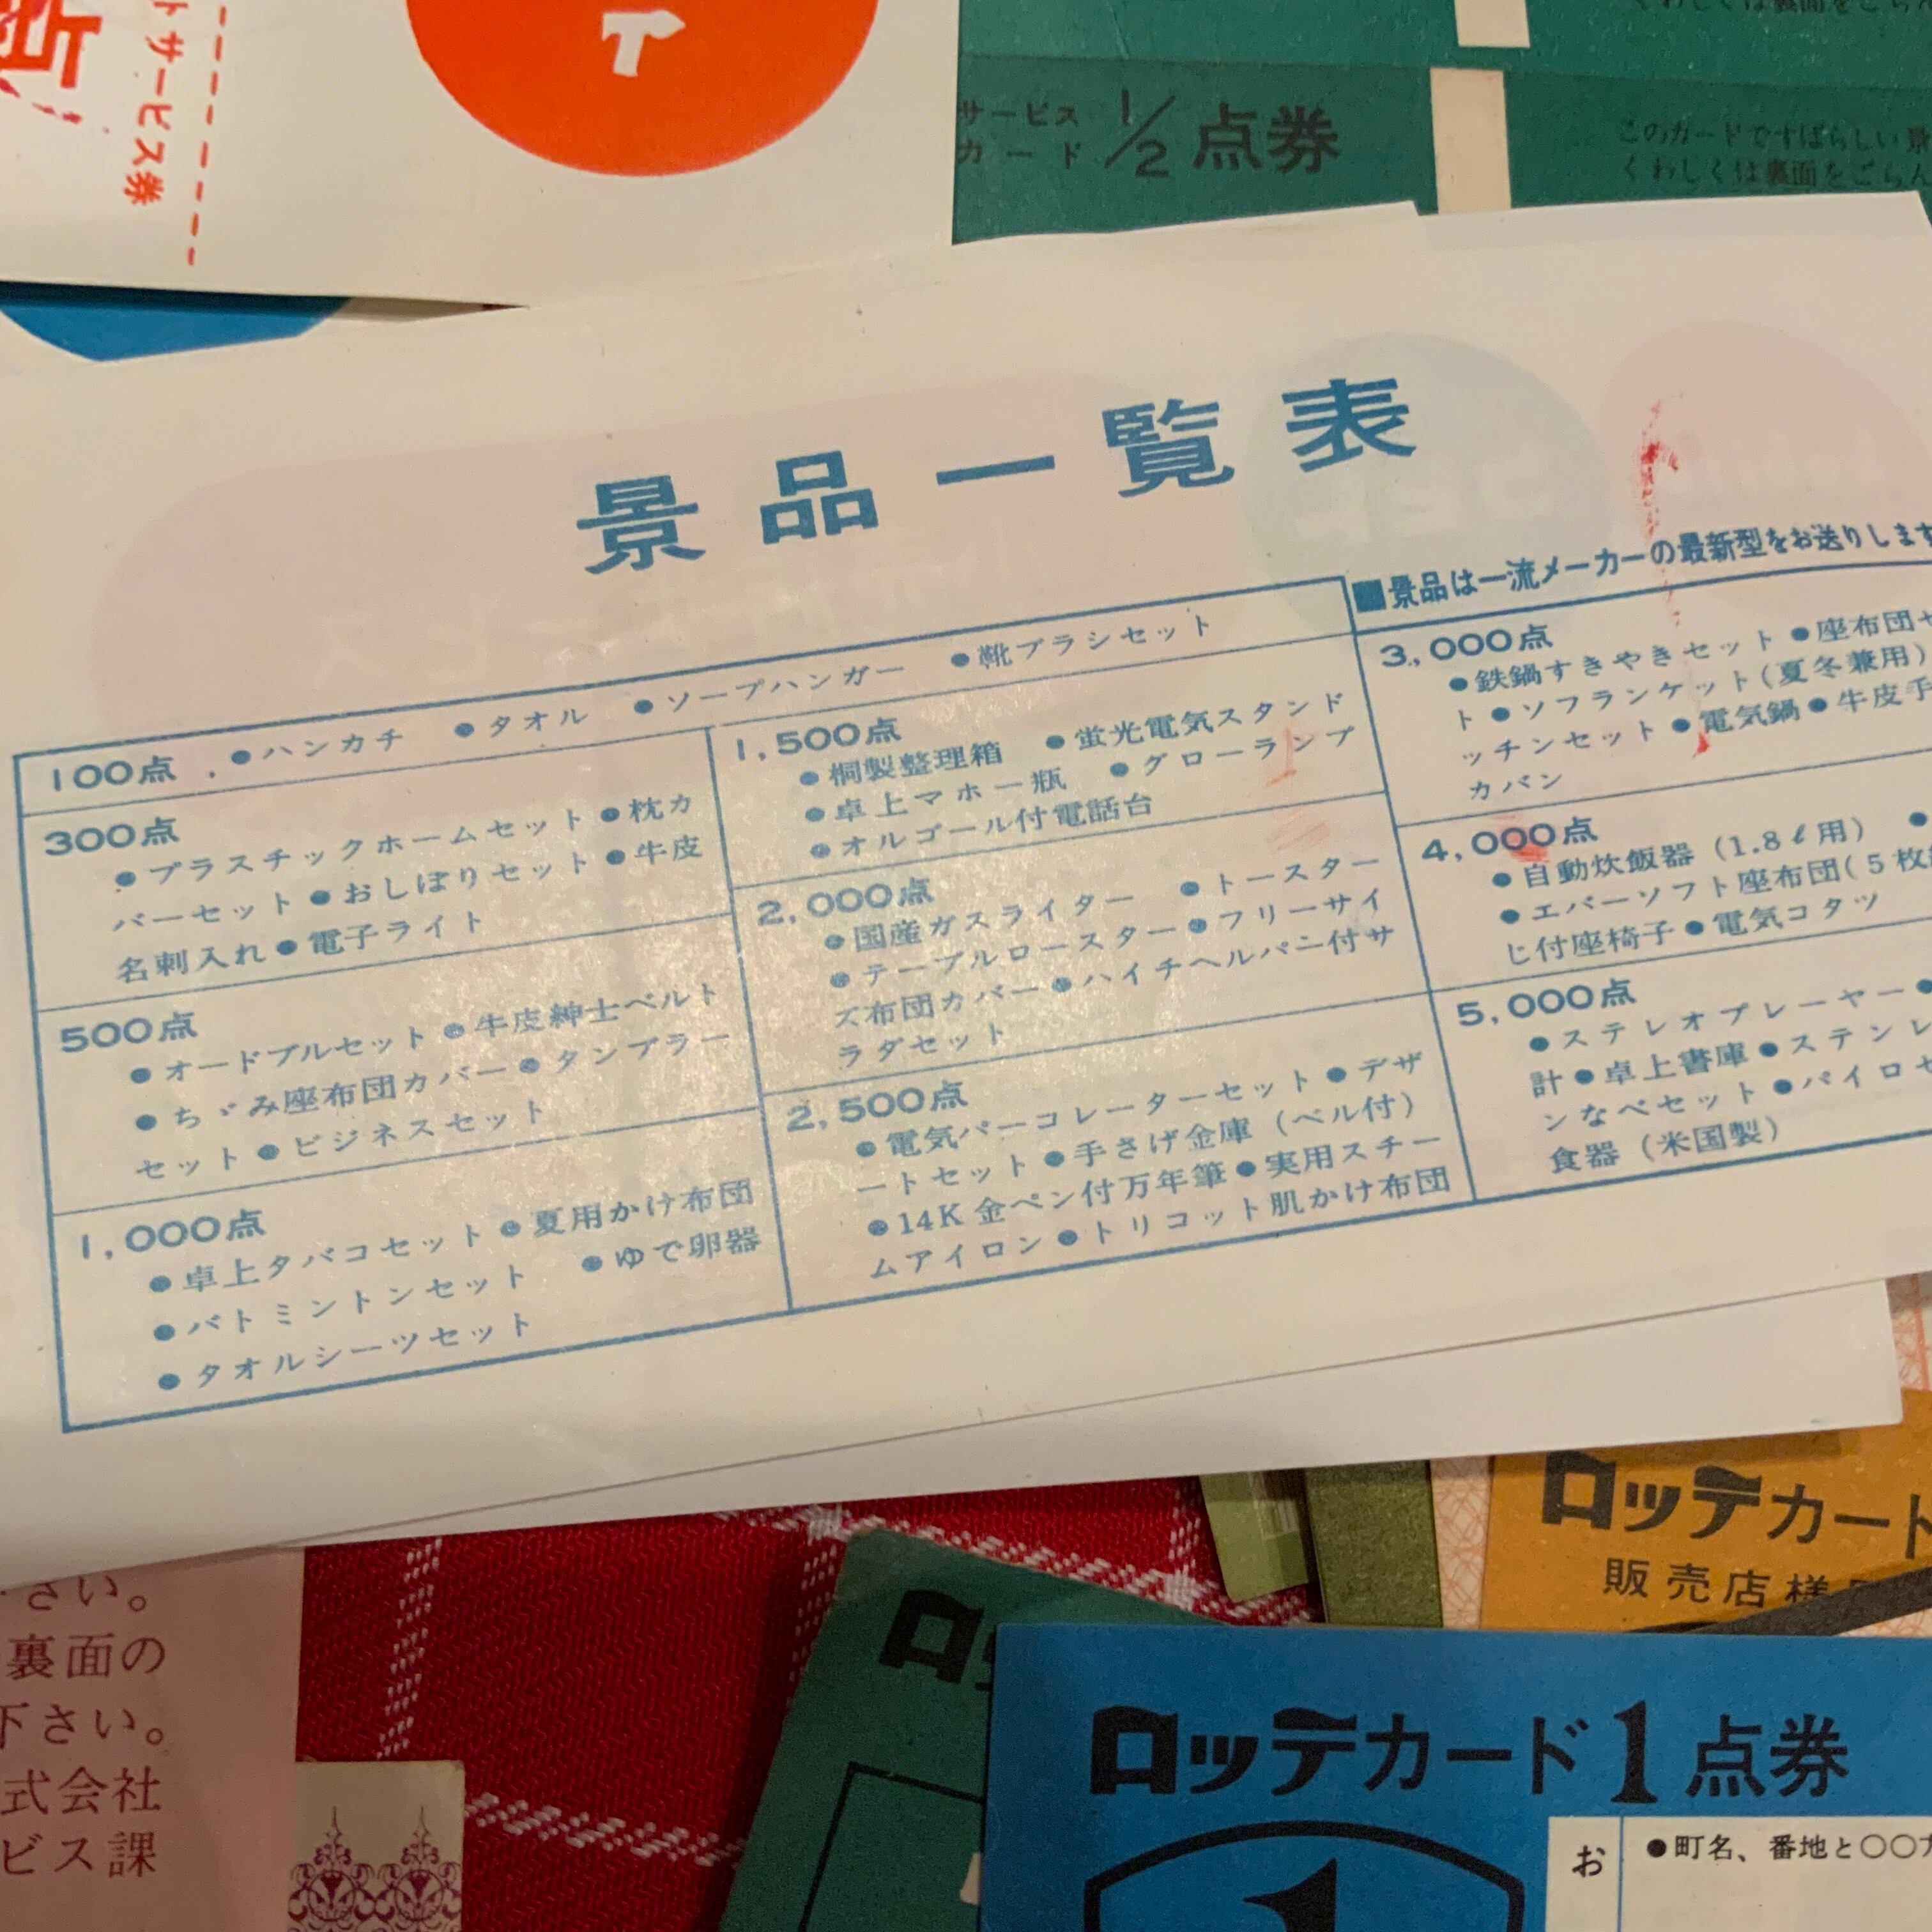 トサービス券
サービス
カード
1/2点券
このカードですばらしい景
くわしくは裏面をごらん
景品一覧表
■景品は一流メーカーの最新型をお送りします
100点 ●ハンカチ ●タオル ●ソープハンガー ●靴ブラシセット
300点
●プラスチックホームセット●枕カ
バーセット●おしぼりセット●牛皮
名刺入れ●電子ライト
500点
●オードブルセット●牛皮紳士ベルト
●ちゞみ座布団カバー●タンブラー
セット●ビジネスセット
1,000点
●卓上タバコセット●夏用かけ布団
●バトミントンセット ●ゆで卵器
●タオルシーツセット
1,500点
●桐製整理箱 ●蛍光電気スタンド
●卓上マホー瓶 ●グローランプ
●オルゴール付電話台
2,000点
●国産ガスライター ●トースター
●テーブルロースター●フリーサイ
ズ布団カバー●ハイチヘルパニ付サ
ラダセット
2,500点
●電気パーコレーターセット●デザ
ートセット●手さげ金庫（ベル付）
●14K金ペン付万年筆●実用スチー
ムアイロン●トリコット肌かけ布団
3,000点
●鉄鍋すきやきセット●座布団セ
ト●ソフランケット(夏冬兼用)
ッチンセット●電気鍋●牛皮手
カバン
4,000点
●自動炊飯器（1.8ℓ用） ●
●エバーソフト座布団(5枚
じ付座椅子●電気コタツ
5,000点
●ステレオプレーヤー●
計●卓上書庫●ステンレ
ンなべセット●パイロセ
食器（米国製）
ロッテカード
販売店様
さい。
裏面の
下さい。
式会社
ビス課
ロッ
ロッテカード1点券
1
お
●町名、番地と〇〇方